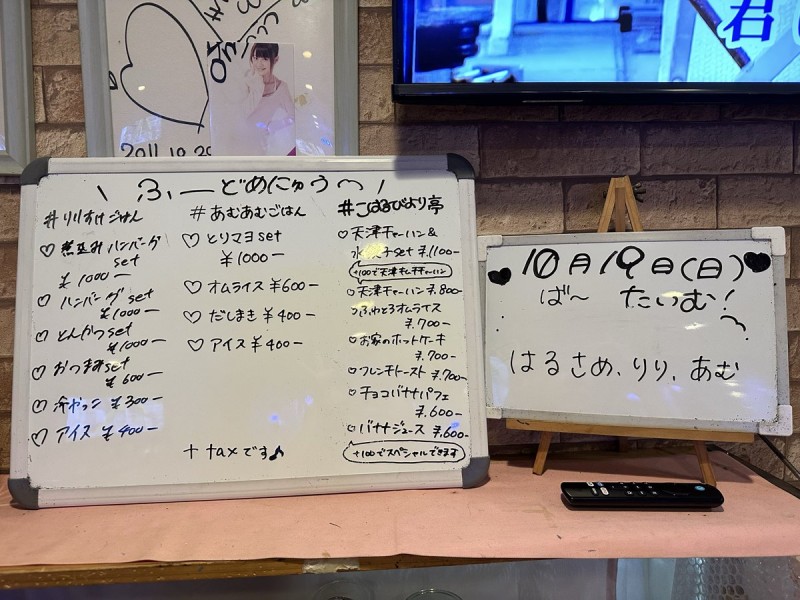 君
2011.10.
\ ふーどめにゅう〜 /
#りりすけごはん
♡煮込みハンバーグ
set
¥1000ー
♡ハンバーグset
¥1000ー
♡とんかつset
¥1000ー
♡おつまみset
¥600ー
♡冷やっこ ¥300ー
♡アイス ¥400ー
#あむあむごはん
♡とりマヨset
¥1000ー
♡オムライス ¥600ー
♡だしまき ¥400ー
♡アイス ¥400ー
+taxです♪
#こはるびより亭
♡天津チャーハン&
水餃子set ¥1100ー
+100で天津キムチチャーハン
♡天津チャーハン ¥800ー
♡ふわとろオムライス
¥700ー
♡お家のホットケーキ
¥700ー
♡フレンチトースト ¥700ー
♡チョコバナナパフェ
¥600ー
♡バナナジュース ¥600ー
+100でスペシャルできます
♥10月19日(日)♥
ば〜 たいむ!
はるさめ、りり、あむ